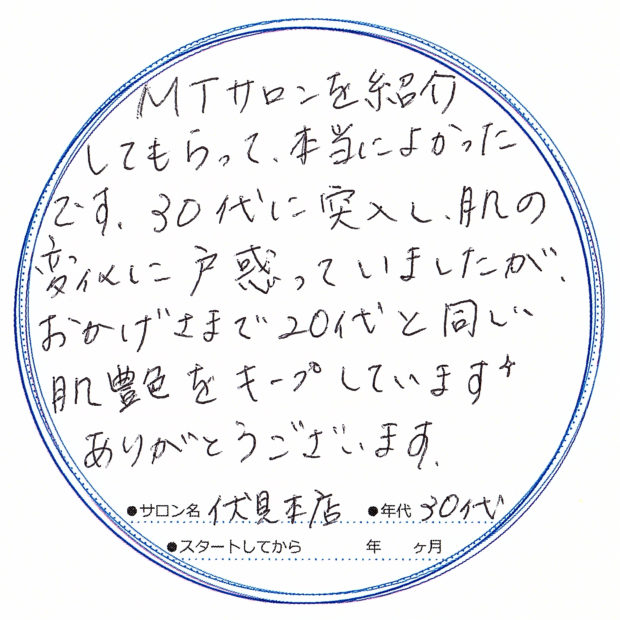 MTサロンを紹介
してもらって、本当によかった
です。30代に突入し、肌の
変化に戸惑っていましたが、
おかげさまで20代と同じ
肌艶をキープしています
ありがとうございます。
●サロン名 伏見本店 ●年代 30代
●スタートしてから 年 ヶ月